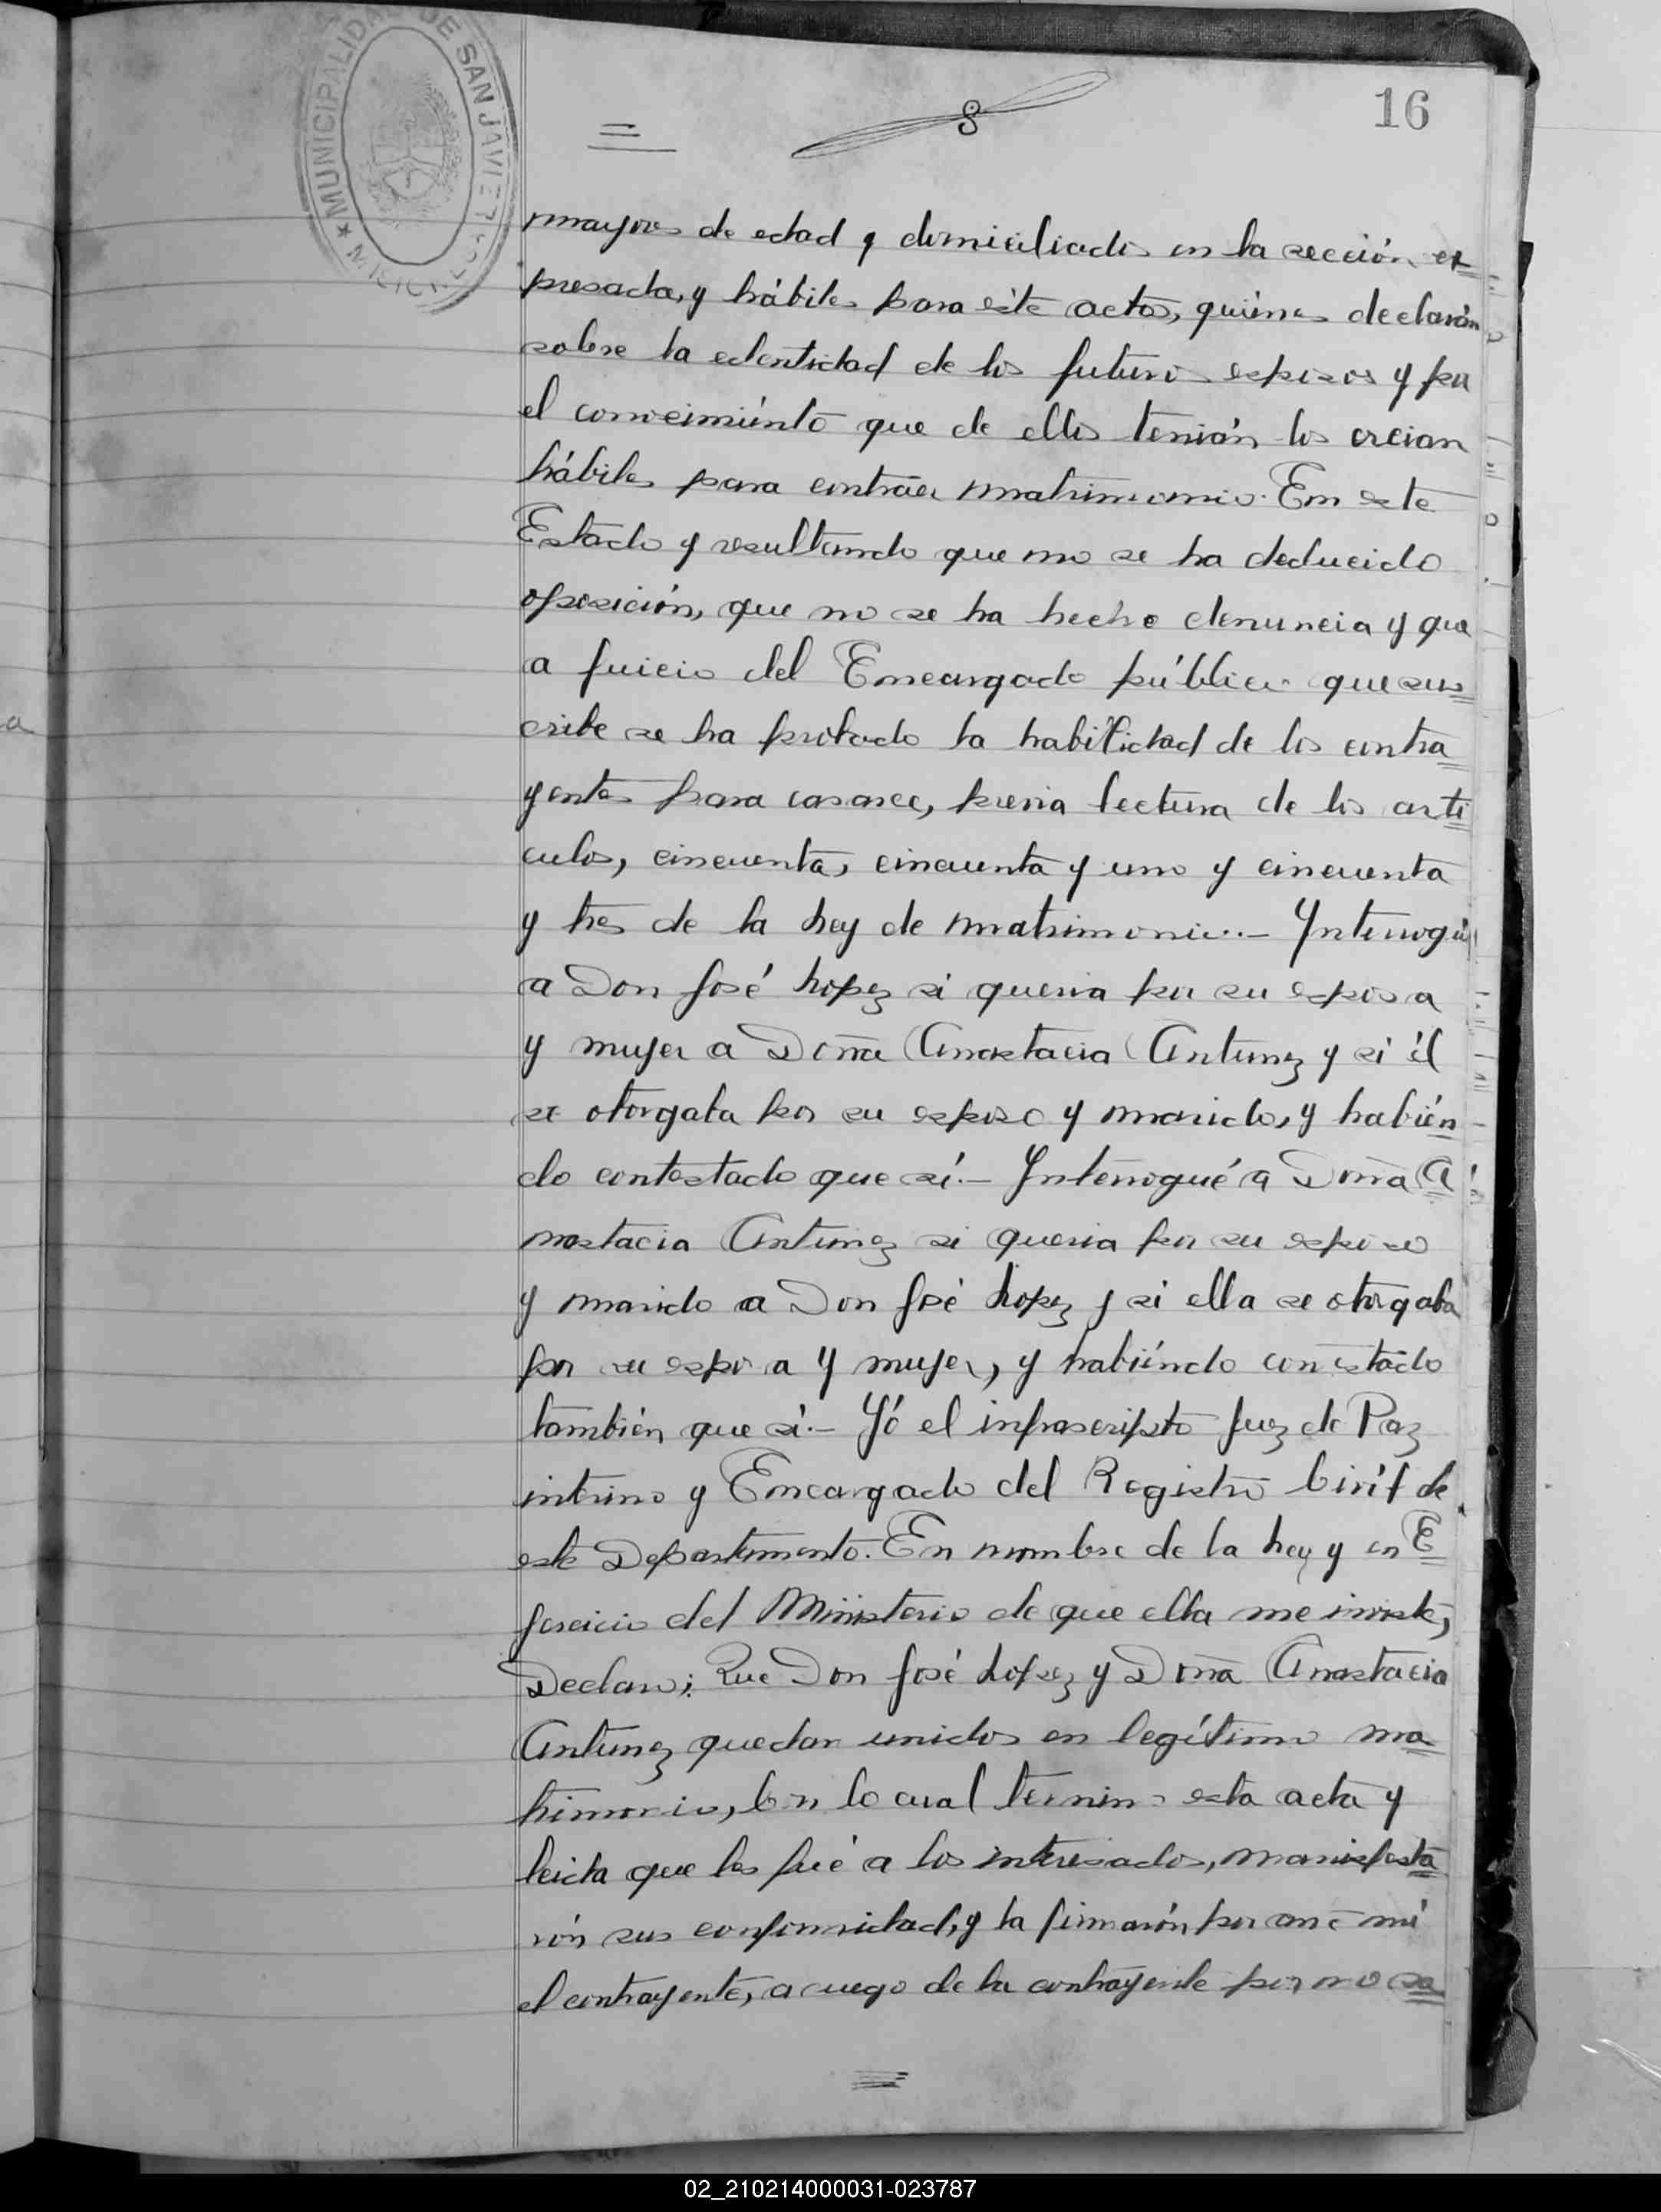 MUNICIPALIDAD DE SAN JAVIER
MISIONES
8
16
mayores de edad, domiciliados en la sección ex=
presada, y hábiles para éste acto, quiénes declarón
sobre la edentidad de los futuros esposos y por
el conocimiénto que de ellos tenián los creian
hábiles para contráer matrimonio. En este
Estado y resultando que no se ha deducido
oposición, que no se ha hecho denuncia y que
a juicio del Encargado público que sus=
cribe se ha probado la habilidad de los contra=
yentes para casarce, previa lectura de los arti=
culos, cincuenta, cincuenta y uno y cincuenta
y tres de la Ley de matrimonio.- Ynterrogué
a Don José Lopez si queria por su esposa
y mujer a Doña Anastacia Antunez y si él
se otorgaba por su esposo y marido, y habién=
do contestado que sí.- Ynterrogué a Doña A=
nastacia Antunez si queria por su esposo
y marido a Don José Lopez y si ella se otorgaba
por su esposa y mujer, y habiéndo contestado
también que sí.- Yó el infrascripto Juez de Paz
interino y Encargado del Registro Civil de
este Departamento. En nombre de la Ley y en E=
jercicio del Ministerio de que ella me inviste,
Declaro; Que Don José Lopez y Doña Anastacia
Antunez quedan unidos en legítimo ma=
trimonio, Con lo cual termino esta acta y
leida que les fué a los interesados, manifesta=
rón sus conformidad, y la firmarón por ante mi
el contrayente, a ruego de la contrayente por no sa=
02_210214000031-023787